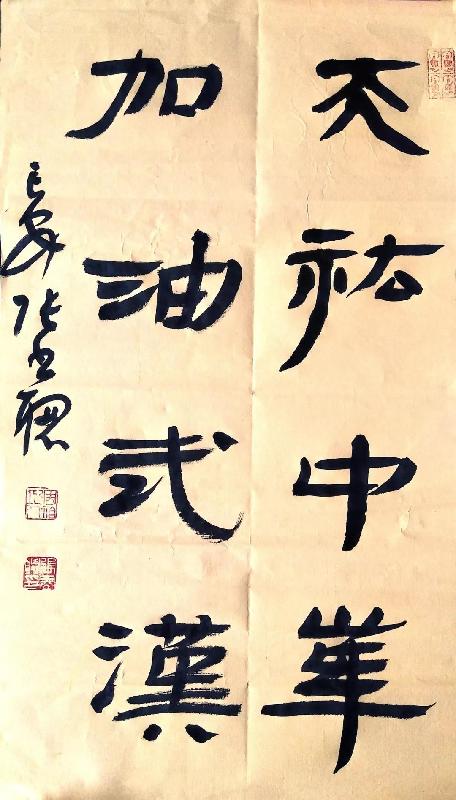 天祐中華
加油武漢